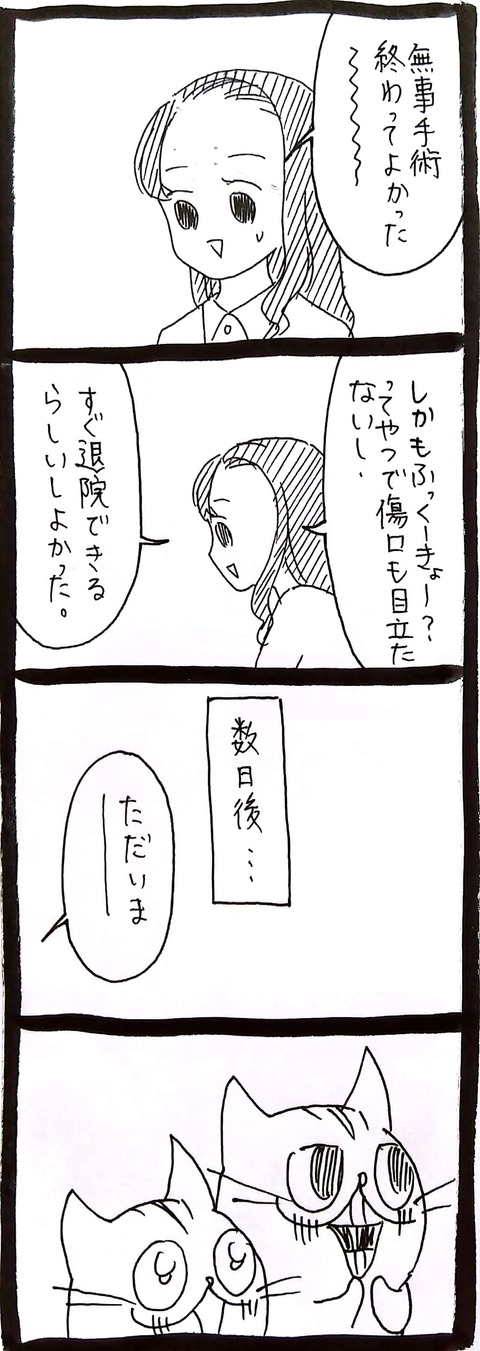 無事手術
終わってよかった
〜〜〜〜
しかもふっくーきょー？
ってやつで傷口も目立た
ないし、
すぐ退院できる
らしいしよかった。
数日後…
ただいま
ー